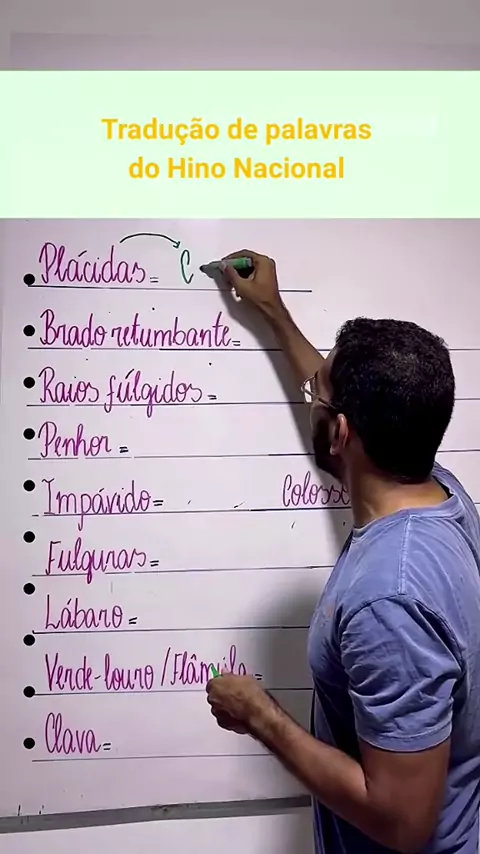 Tradução de palavras
do Hino Nacional
Plácidas = C
Brado retumbante =
Raios fúlgidos =
Penhor =
Impávido = Colosso
Fulguras =
Lábaro =
Verde-louro / Flâmula =
Clava =